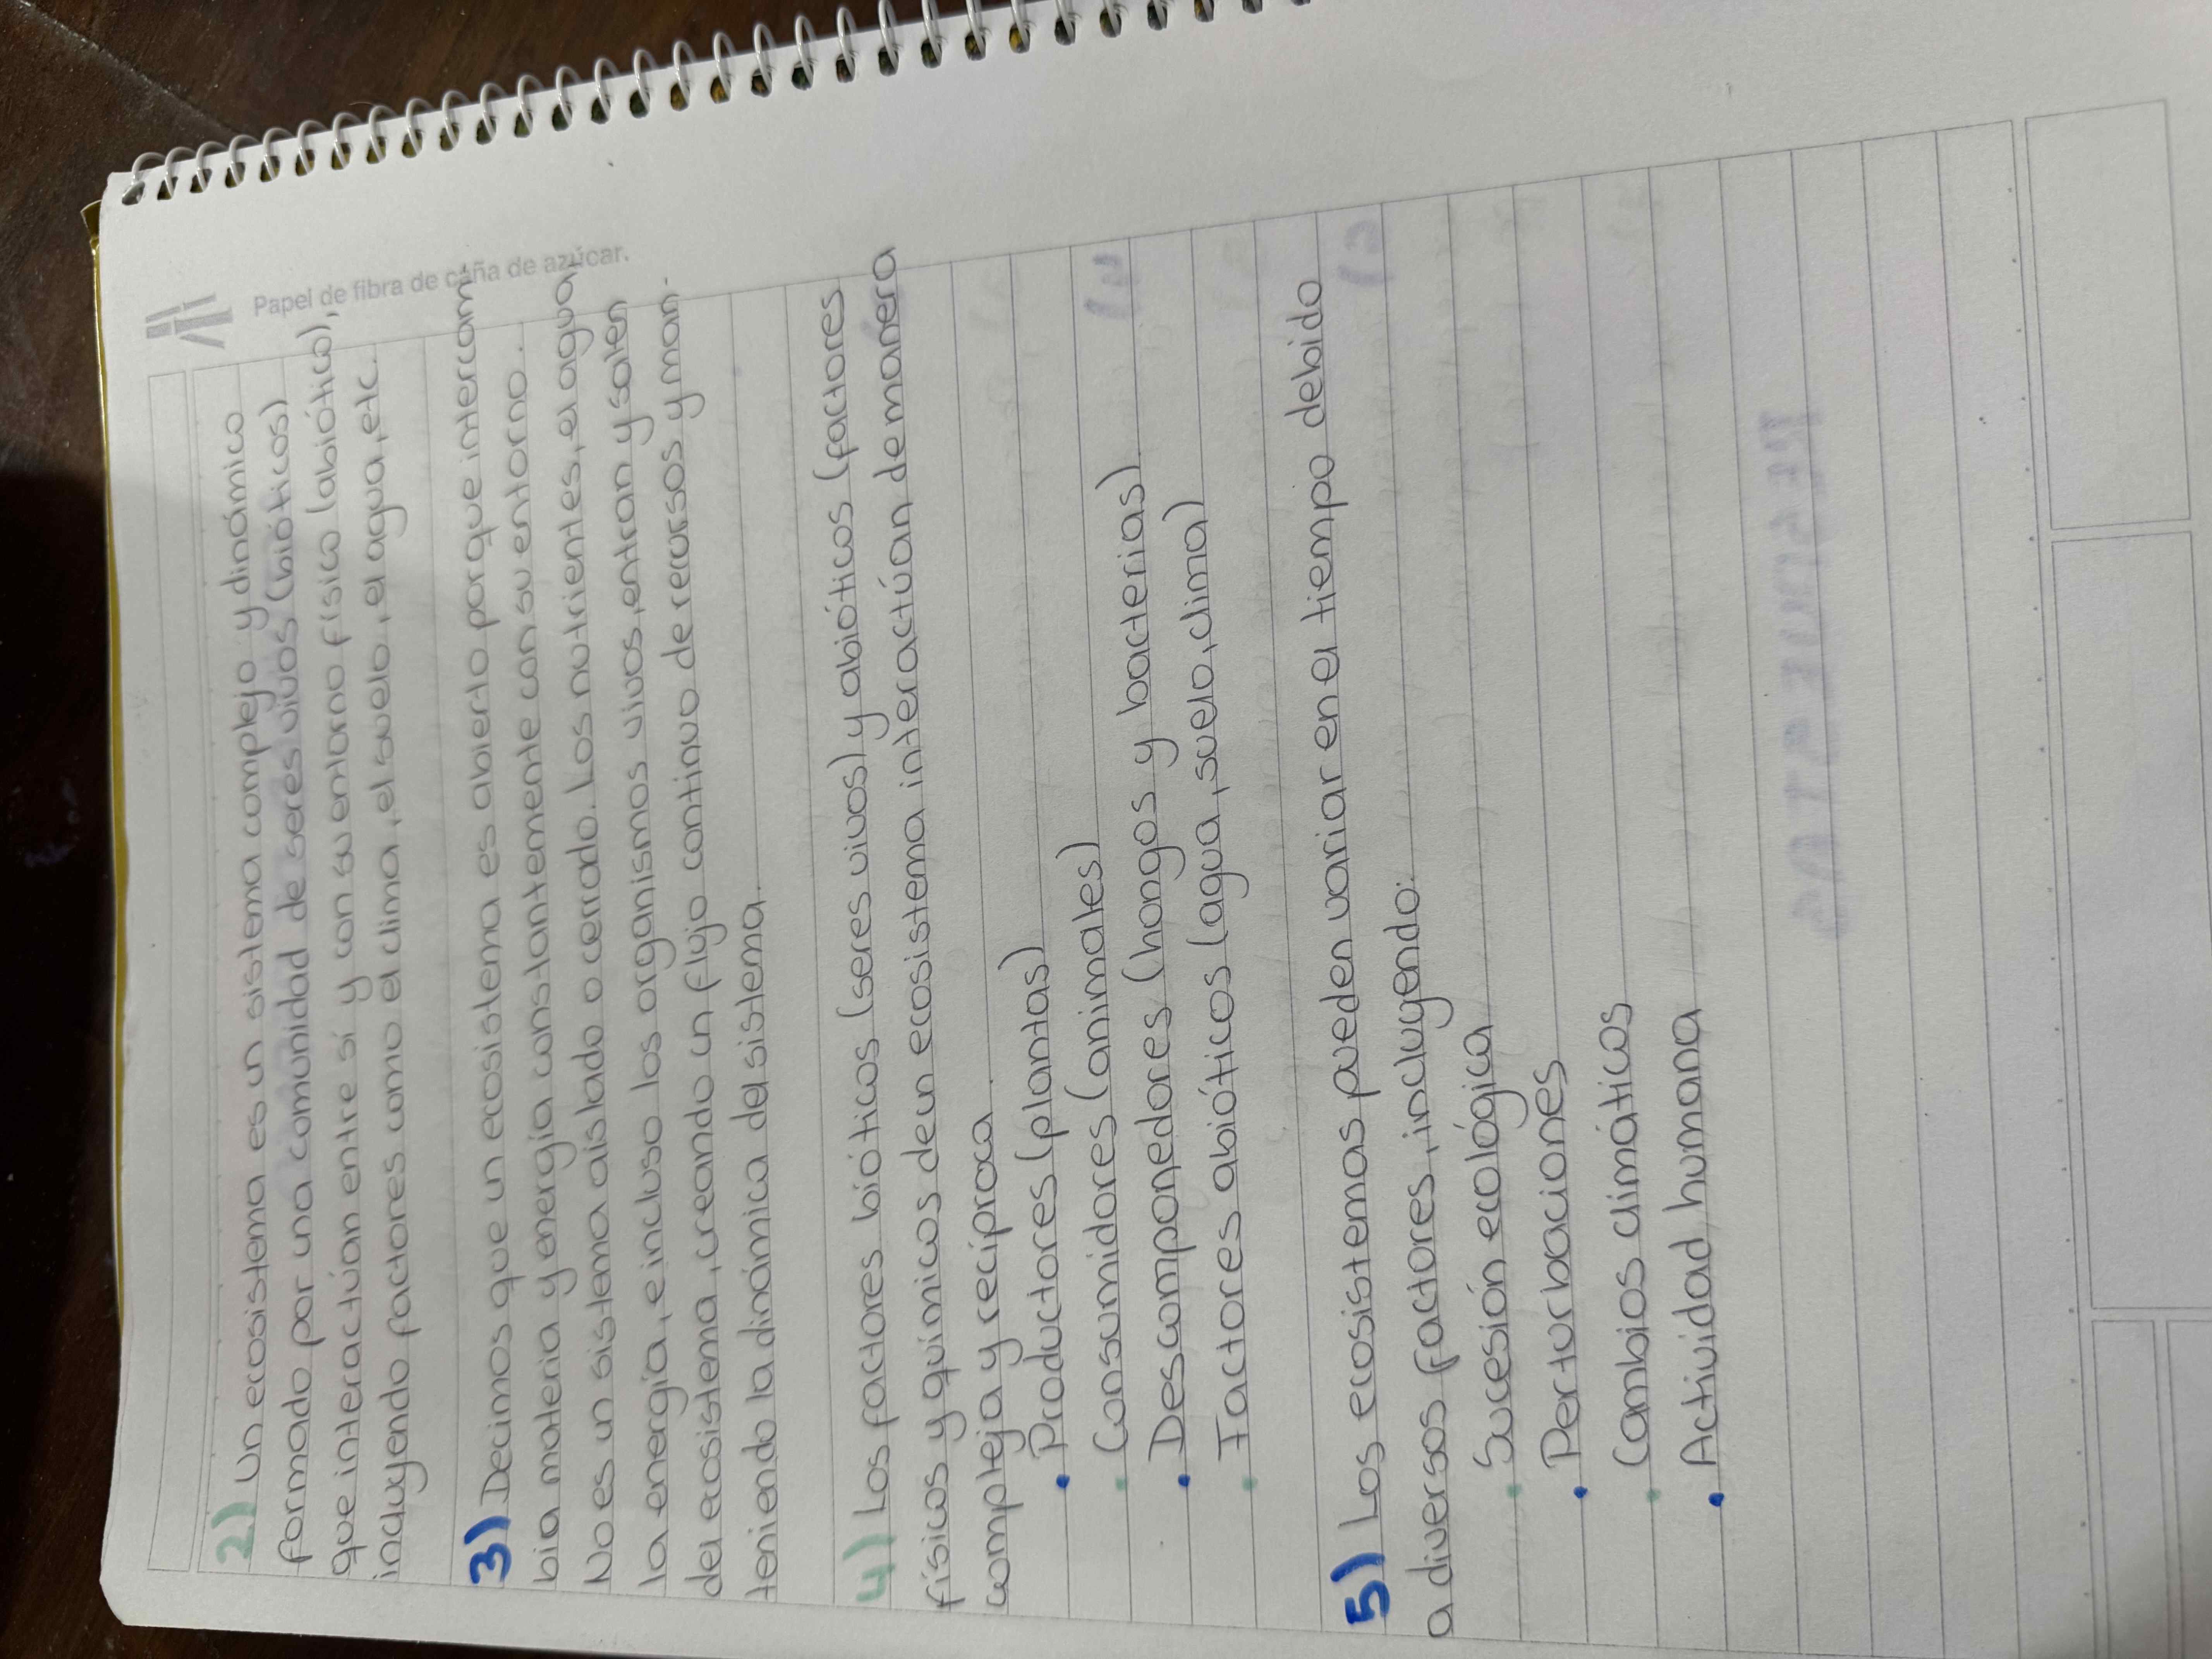 Papel de fibra de caña de azúcar.
2) Un ecosistema es un sistema complejo y dinámico
formado por una comunidad de seres vivos (bióticos)
que interactúan entre sí y con su entorno físico (abiótico),
incluyendo factores como el clima, el suelo, el agua, etc.
3) Decimos que un ecosistema es abierto porque intercam-
bia materia y energía constantemente con su entorno.
No es un sistema aislado o cerrado. Los nutrientes, el agua,
la energía, e incluso los organismos vivos, entran y salen
del ecosistema, creando un flujo continuo de recursos y man-
teniendo la dinámica del sistema.
4) Los factores bióticos (seres vivos) y abióticos (factores
físicos y químicos de un ecosistema interactúan de manera
compleja y recíproca.
• Productores (plantas)
• Consumidores (animales)
• Descomponedores (hongos y bacterias)
• Factores abióticos (agua, suelo, clima)
5) Los ecosistemas pueden variar en el tiempo debido
a diversos factores, incluyendo:
• Sucesión ecológica
• Perturbaciones
• Cambios climáticos
• Actividad humana